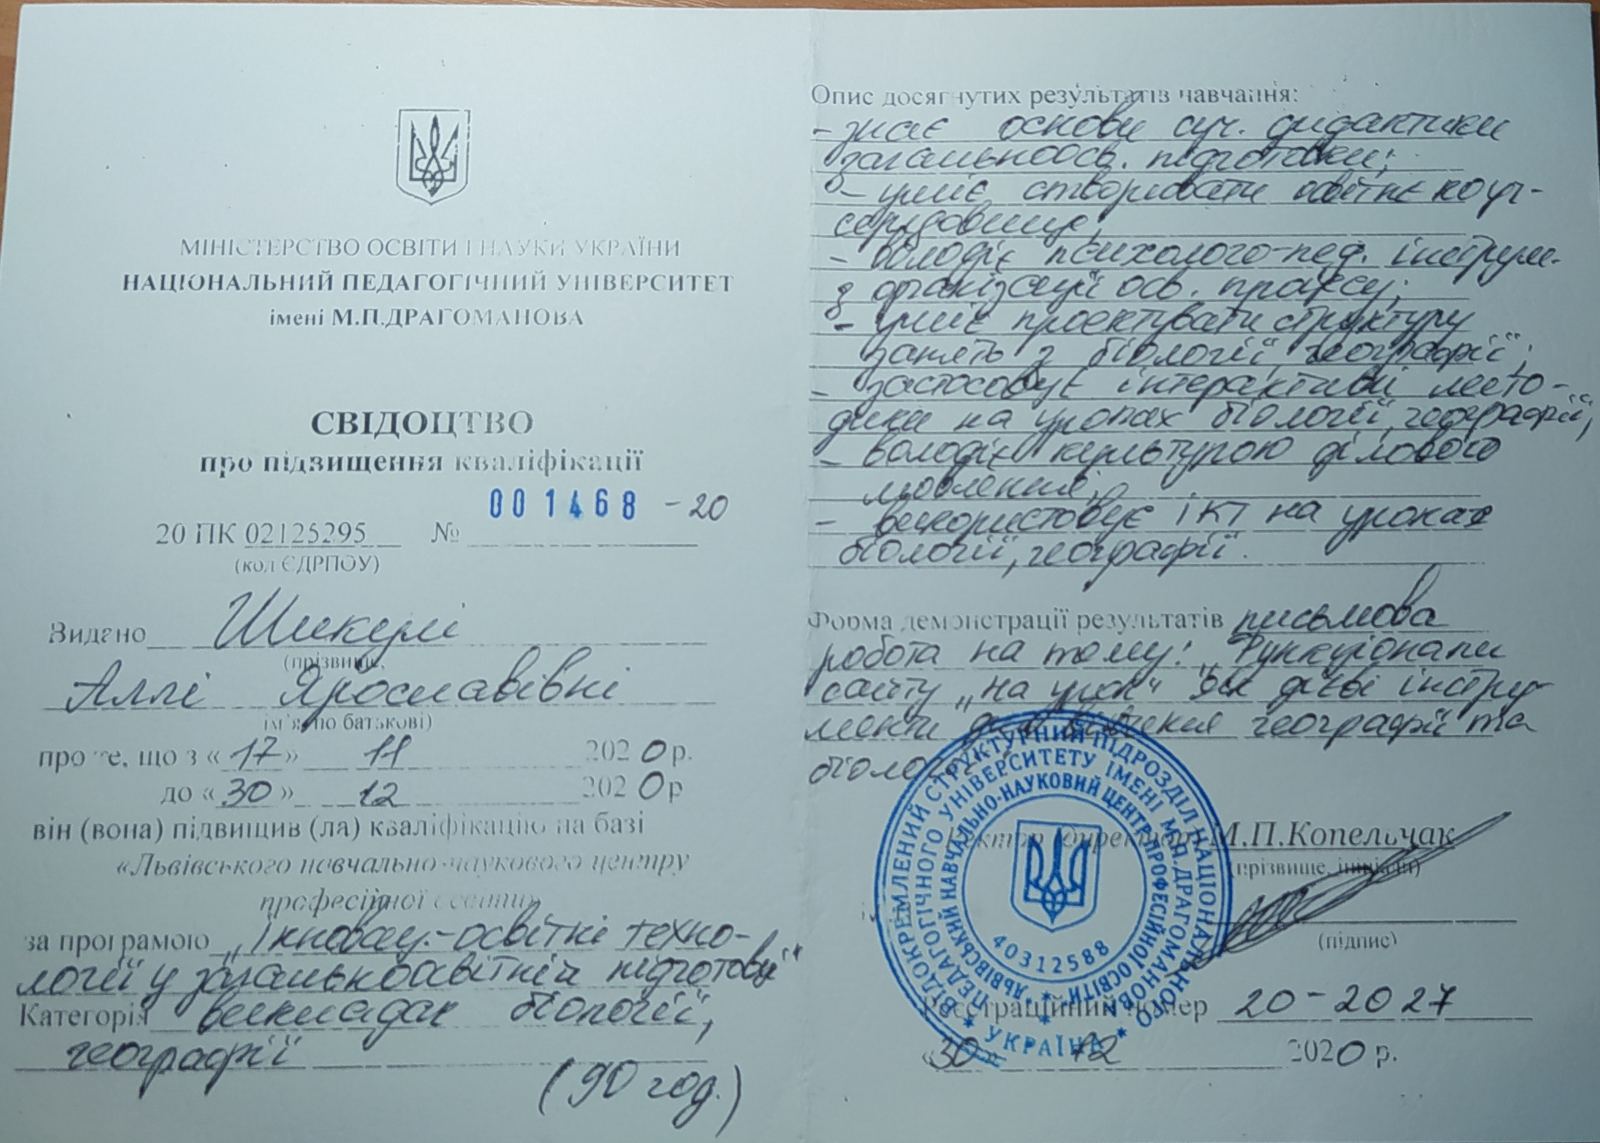 МІНІСТЕРСТВО ОСВІТИ І НАУКИ УКРАЇНИ
НАЦІОНАЛЬНИЙ ПЕДАГОГІЧНИЙ УНІВЕРСИТЕТ
імені М.П.ДРАГОМАНОВА
СВІДОЦТВО
про підвищення кваліфікації
001468 - 20
20 ПК 02125295 №
(код ЄДРПОУ)
Видано
(прізвище,
Аллі Ярославівні
ім'я, по батькові)
про те, що з «17» 11 2020 р.
до «30» 12 2020 р
він (вона) підвищив (ла) кваліфікацію на базі
«Львівського навчально-наукового центру
професійної освіти»
за програмою „Інновац.-освітні техно-
логії у загальноосвітній підготовці"
Категорія викладач біології,
географії
(90 год.)
Опис досягнутих результатів навчання:
- знає основи суч. дидактики
загальноосв. підготовки;
- уміє створювати освітнє коуч-
середовище;
- володіє психолого-пед. інструм.
з організації осв. процесу;
- уміє проектувати структуру
занять з біології, географії;
- застосовує інтерактивні мето-
дики на уроках біології, географії;
- володіє культурою ділового
мовлення;
- використовує ІКТ на уроках
біології, географії.
Форма демонстрації результатів письмова
робота на тему: „Функціонали
сайту „На урок" як дієві інстру-
менти для вивчення географії та
біології
Ректор (директор) М.П.Копельчак
(прізвище, ініціали)
(підпис)
Реєстраційний номер 20-2027
«30» 12 2020 р.
ВІДОКРЕМЛЕНИЙ СТРУКТУРНИЙ ПІДРОЗДІЛ НАЦІОНАЛЬНОГО
ПЕДАГОГІЧНОГО УНІВЕРСИТЕТУ ІМЕНІ М.П. ДРАГОМАНОВА
"ЛЬВІВСЬКИЙ НАВЧАЛЬНО-НАУКОВИЙ ЦЕНТР ПРОФЕСІЙНОЇ ОСВІТИ"
40312588
* УКРАЇНА *